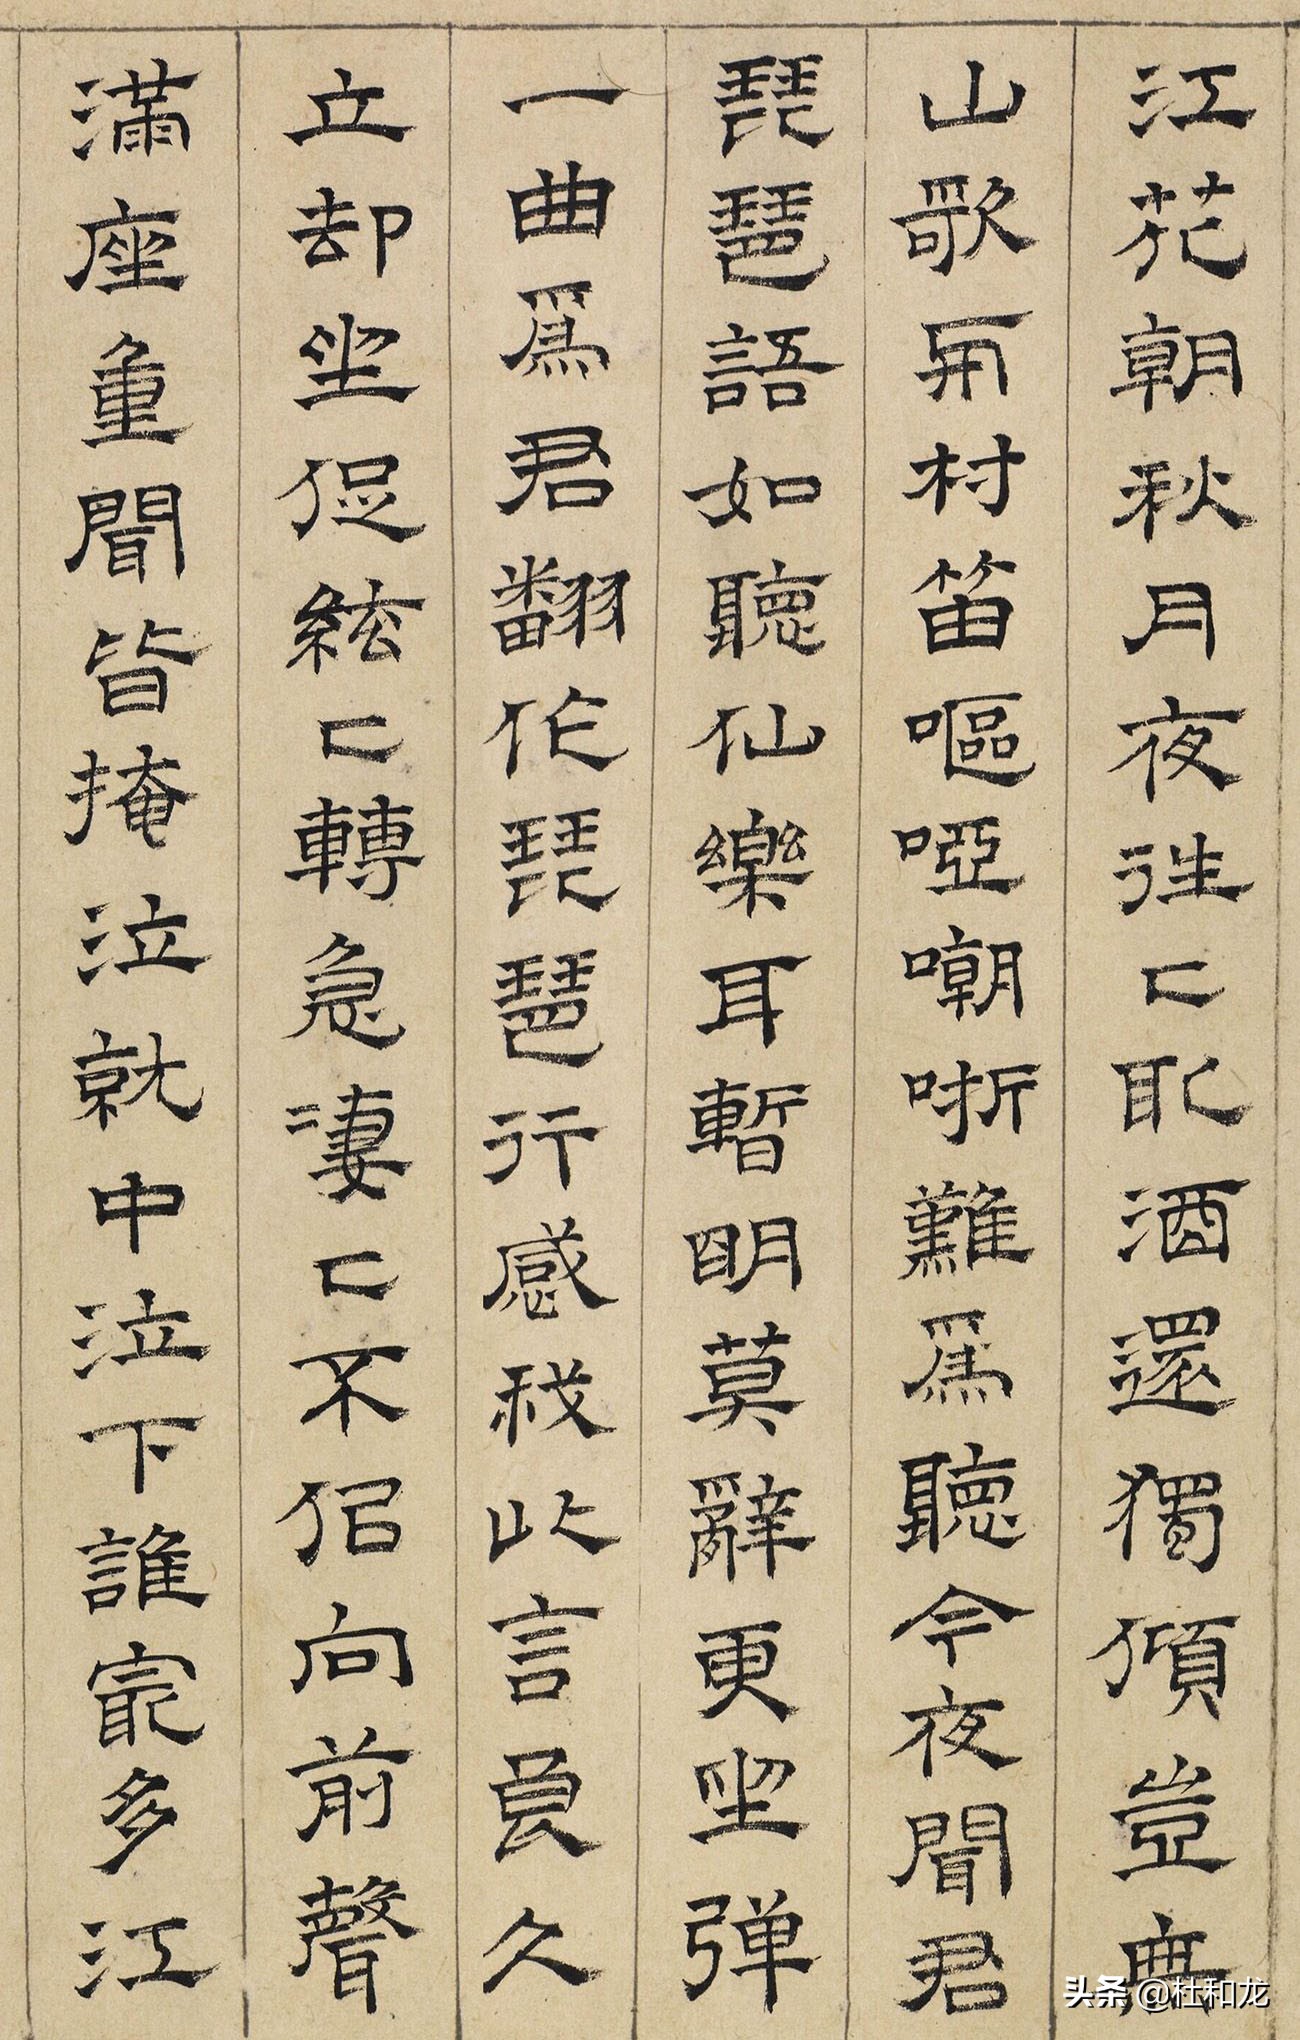 江花朝秋月夜往〻取酒還獨傾豈無
山歌與村笛嘔啞嘲哳難爲聽今夜聞君
琵琶語如聽仙樂耳暫明莫辭更坐弹
一曲爲君翻作琵琶行感我此言良久
立却坐促絃〻轉急凄〻不侣向前聲
滿座重聞皆掩泣就中泣下誰㝡多江
头条 @杜和龙